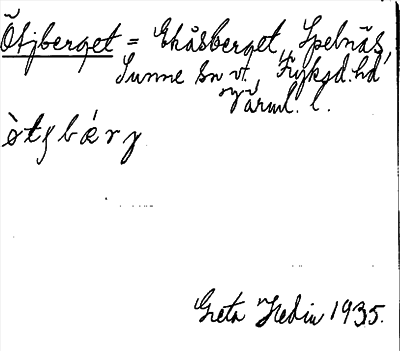 Ötjberget = Ekåsberget, Spelnäs,
Sunne sn vt., Fryksd. hd
Värml. l.
òtʃbǽrγ
Greta Hedin 1935.